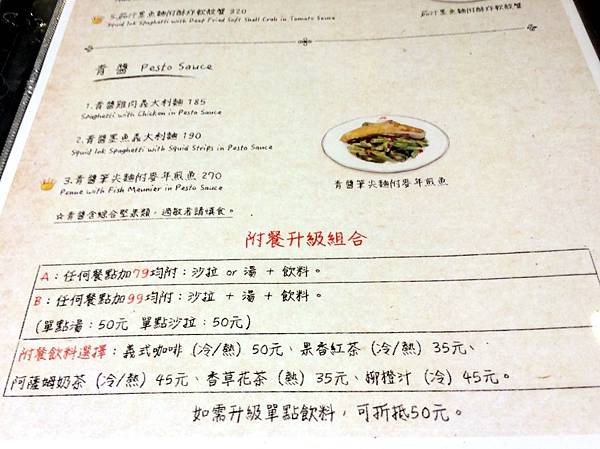 5.茄汁墨魚麵附酥炸軟殼蟹 320
Squid Ink Spaghetti with Deep Fried Soft Shell Crab in Tomato Sauce
茄汁墨魚麵附酥炸軟殼蟹
青醬 Pesto Sauce
1.青醬雞肉義大利麵 185
Spaghetti with Chicken in Pesto Sauce
2.青醬墨魚義大利麵 190
Squid Ink Spaghetti with Squid Strips in Pesto Sauce
3.青醬筆尖麵附麥年煎魚 270
Penne with Fish Meunier in Pesto Sauce
青醬筆尖麵附麥年煎魚
☆青醬含綜合堅果類，過敏者請慎食。
附餐升級組合
A：任何餐點加79均附：沙拉 or 湯 + 飲料。
B：任何餐點加99均附：沙拉 + 湯 + 飲料。
(單點湯：50元 單點沙拉：50元)
附餐飲料選擇：義式咖啡 (冷/熱) 50元、果香紅茶 (冷/熱) 35元、
阿薩姆奶茶 (冷/熱) 45元、香草花茶 (熱) 35元、柳橙汁 (冷) 45元。
如需升級單點飲料，可折抵50元。